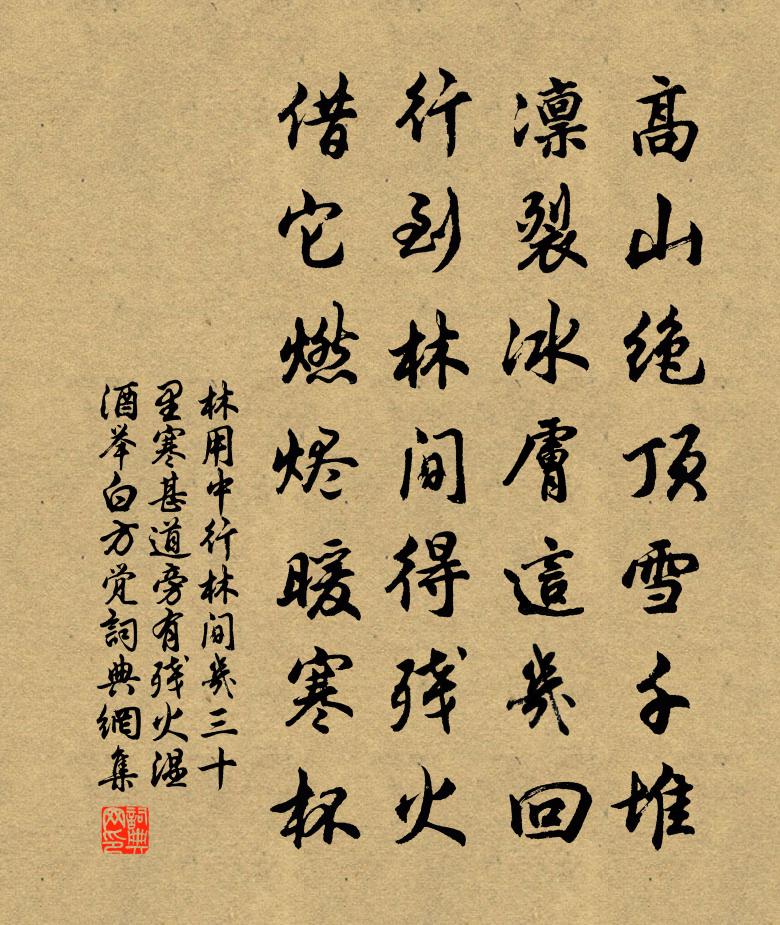 高山绝顶雪千堆
凛裂冰膚這幾回
行到林间得残火
借它燃烬暖寒杯
林用中行林间幾三十
里寒甚道旁有残火温
酒举白方觉詞典網集
詞典网印